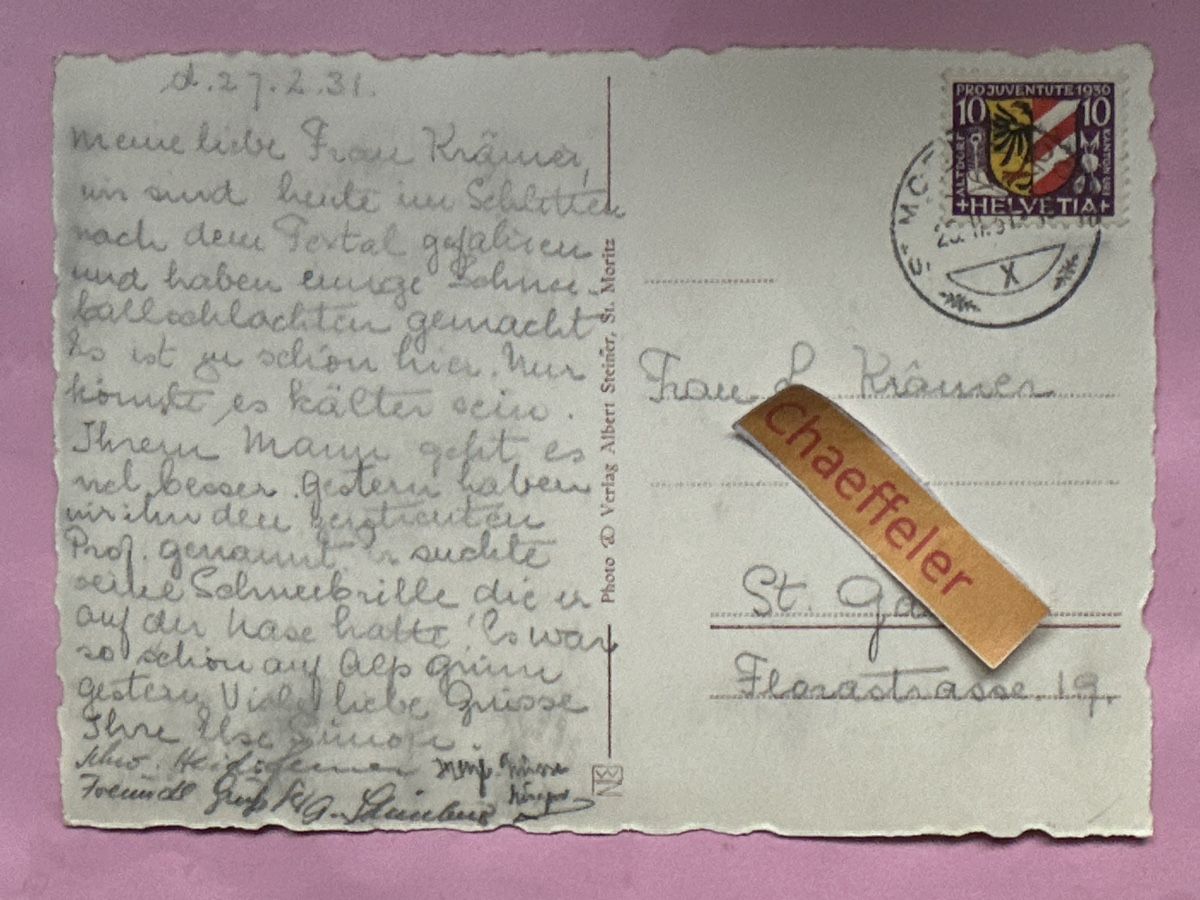 d. 27.2.31.
Meine liebe Frau Krämer,
wir sind heute im Schlitten
nach dem Fextal gefahren
und haben einige Schnee-
ballschlachten gemacht
Es ist zu schön hier. Nur
könnte es kälter sein.
Ihrem Mann geht es
viel besser. Gestern haben
wir ihn den zerstreuten
Prof. genannt. Er suchte
seine Schneebrille die er
auf der Nase hatte! Es war
so schön auf Alp Grüm
gestern. Viele liebe Grüsse
Ihre Else Simon.
Freundl Gruß
Photo Verlag Albert Steiner, St. Moritz
PRO JUVENTUTE 1930
10 10
ALTDORF
KANTON URI
HELVETIA
X
Frau L. Krämer
Chaeffeler
St.
Florastrasse 19.